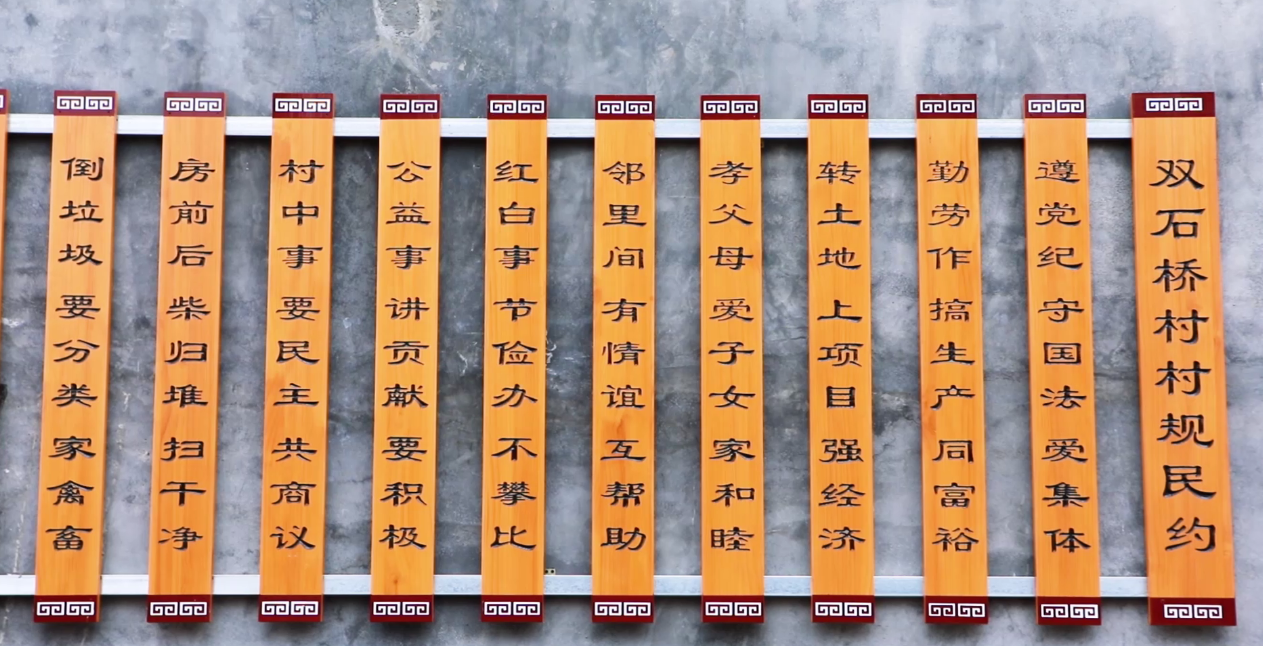 双石桥村村规民约
遵党纪守国法爱集体
勤劳作搞生产同富裕
转土地上项目强经济
孝父母爱子女家和睦
邻里间有情谊互帮助
红白事节俭办不攀比
公益事讲贡献要积极
村中事要民主共商议
房前后柴归堆扫干净
倒垃圾要分类家禽畜